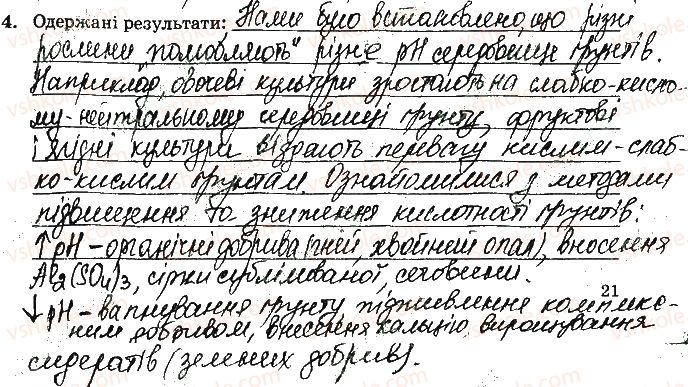 4. Одержані результати: Нами було встановлено, що різні
рослини "полюбляють" різне pH середовище ґрунтів.
Наприклад, овочеві культури зростають на слабко-кисло-
му-нейтральному середовищі ґрунту, фруктові
і ягідні культури віддають перевагу кислим-слаб-
ко-кислим ґрунтам. Ознайомилися з методами
підвищення та зниження кислотності ґрунтів:
↑pH - органічні добрива (гній, хвойний опал), внесення
Al2(SO4)3, сірки сублімованої, сечовини.
21
↓pH - вапнування ґрунту, підживлення комплекс-
ним добривом, внесення кальцію, вирощування
сидератів (зелених добрив).